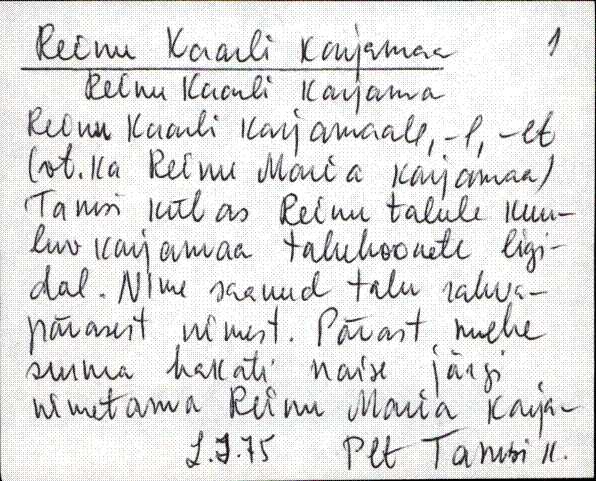 Reinu Kaarli Karjamaa 1
Reinu Kaarli Karjama
Reinu Kaarli Karjamaale, -l, -lt
(vt. ka Reinu Maria Karjamaa)
Tamsi külas Reinu talule kuu-
luv karjamaa taluhoonete ligi-
dal. Nime saanud talu rahva-
pärasest nimest. Pärast mehe
surma hakati naise järgi
nimetama Reinu Maria Karja-
J.J.75 Plt Tamsi k.